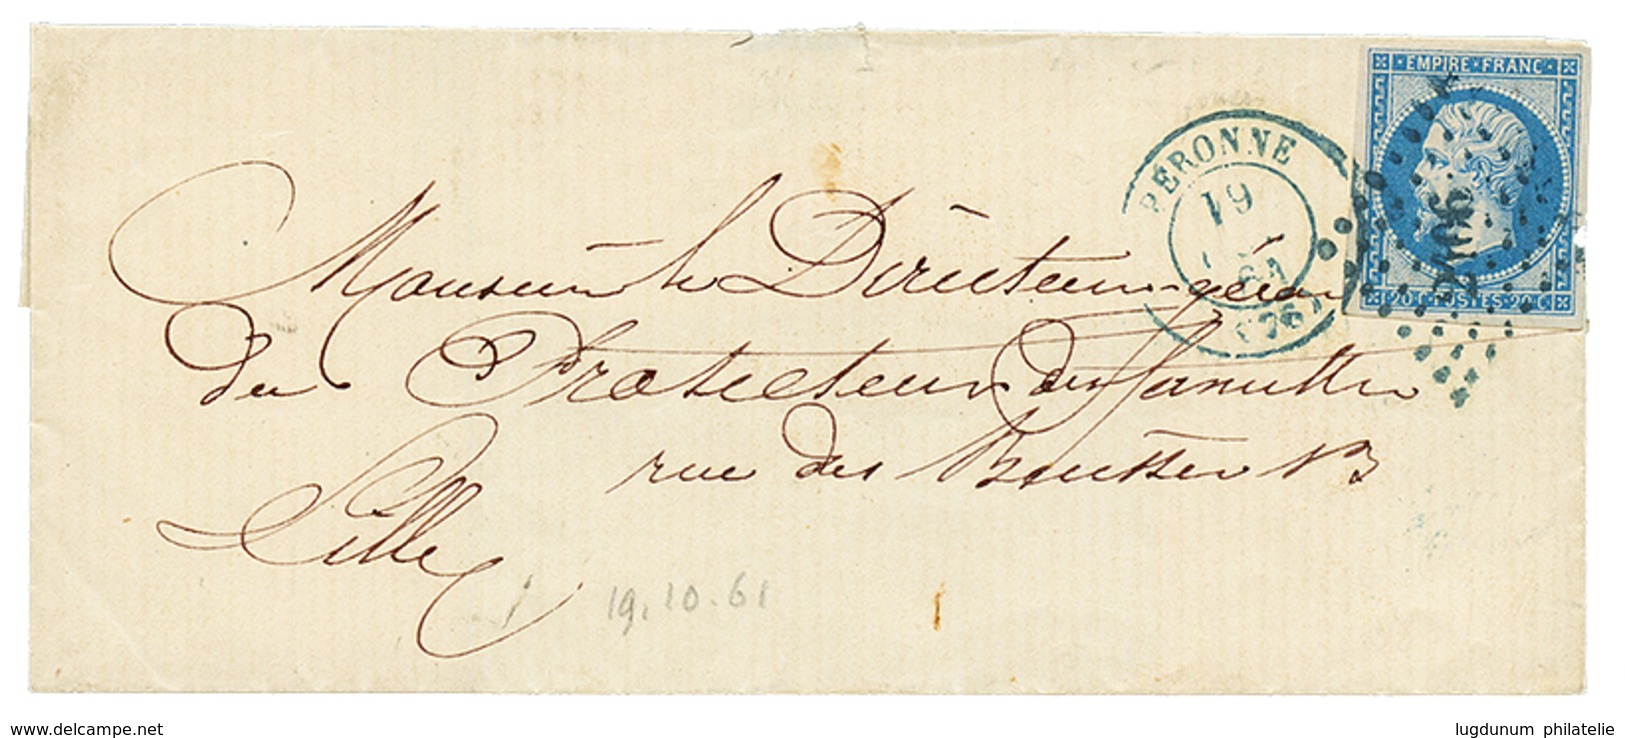 EMPIRE FRANC
PÉRONNE
19
61
(76)
2406
20 C. POSTES 20 C.
Monsieur le Directeur-gérant
du Protecteur des familles
rue des
Lille
19.10.61
www.delcampe.net
lugdunum philatelie